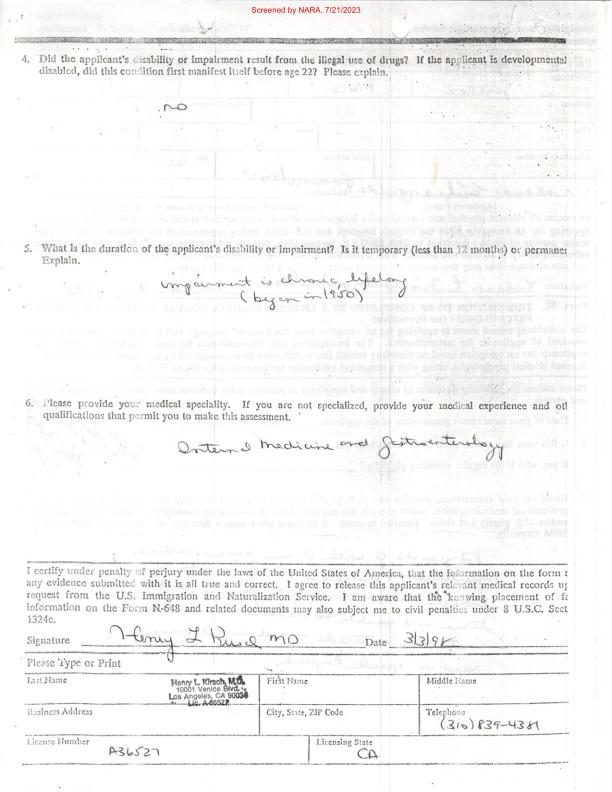 Screened by NARA, 7/21/2023
4. Did the applicant's disability or impairment result from the illegal use of drugs? If the applicant is developmental
disabled, did this condition first manifest itself before age 22? Please explain.
NO
5. What is the duration of the applicant's disability or impairment? Is it temporary (less than 12 months) or permane
Explain.
impairment is chronic, lifelong
(began in 1950)
6. Please provide your medical speciality. If you are not specialized, provide your medical experience and ot
qualifications that permit you to make this assessment.
Internal Medicine and Gastroenterology
I certify under penalty of perjury under the laws of the United States of America, that the information on the form
any evidence submitted with it is all true and correct. I agree to release this applicant's relevant medical records up
request from the U.S. Immigration and Naturalization Service. I am aware that the knowing placement of fa
information on the Form N-648 and related documents may also subject me to civil penalties under 8 U.S.C. Sect
1324c.
Signature Henry L Kirsch MD Date 3/3/98
Please Type or Print
Last Name Henry L. Kirsch, M.D. First Name Middle Name
10001 Venice Blvd.
Los Angeles, CA 90034
Lic. A-36527
Business Address City, State, ZIP Code Telephone
(310) 839-4381
License Number Licensing State
A36527 CA